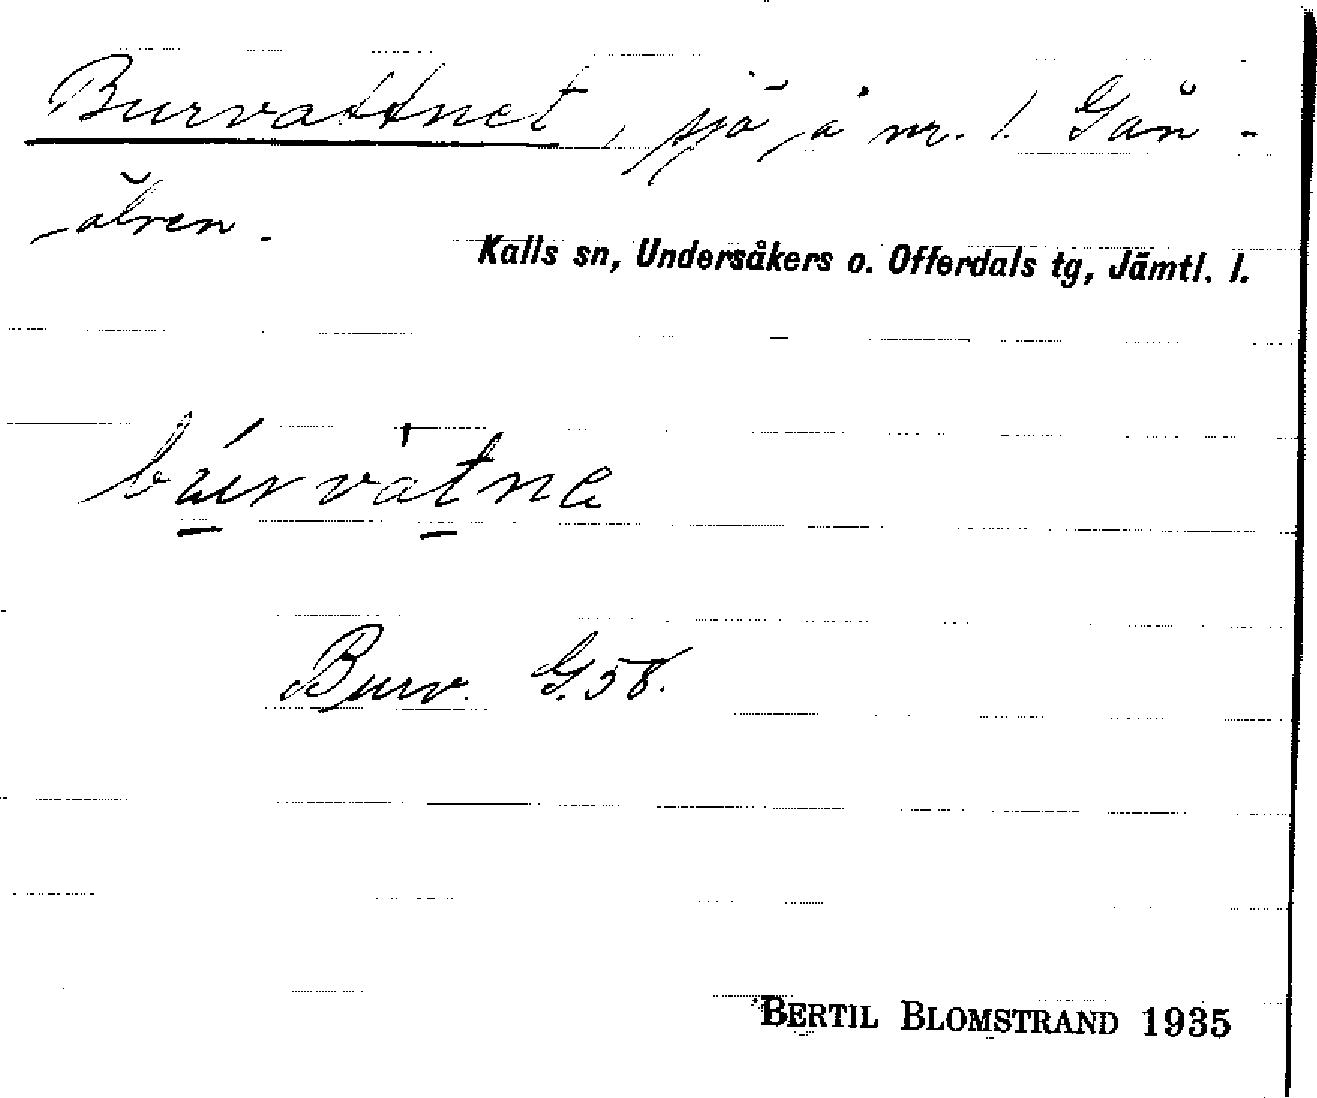 Burvattnet, sjö å nr. 1. Gån-
älven.
Kalls sn, Undersåkers o. Offerdals tg, Jämtl. l.
búrvàtne
Burv. G.58.
BERTIL BLOMSTRAND 1935